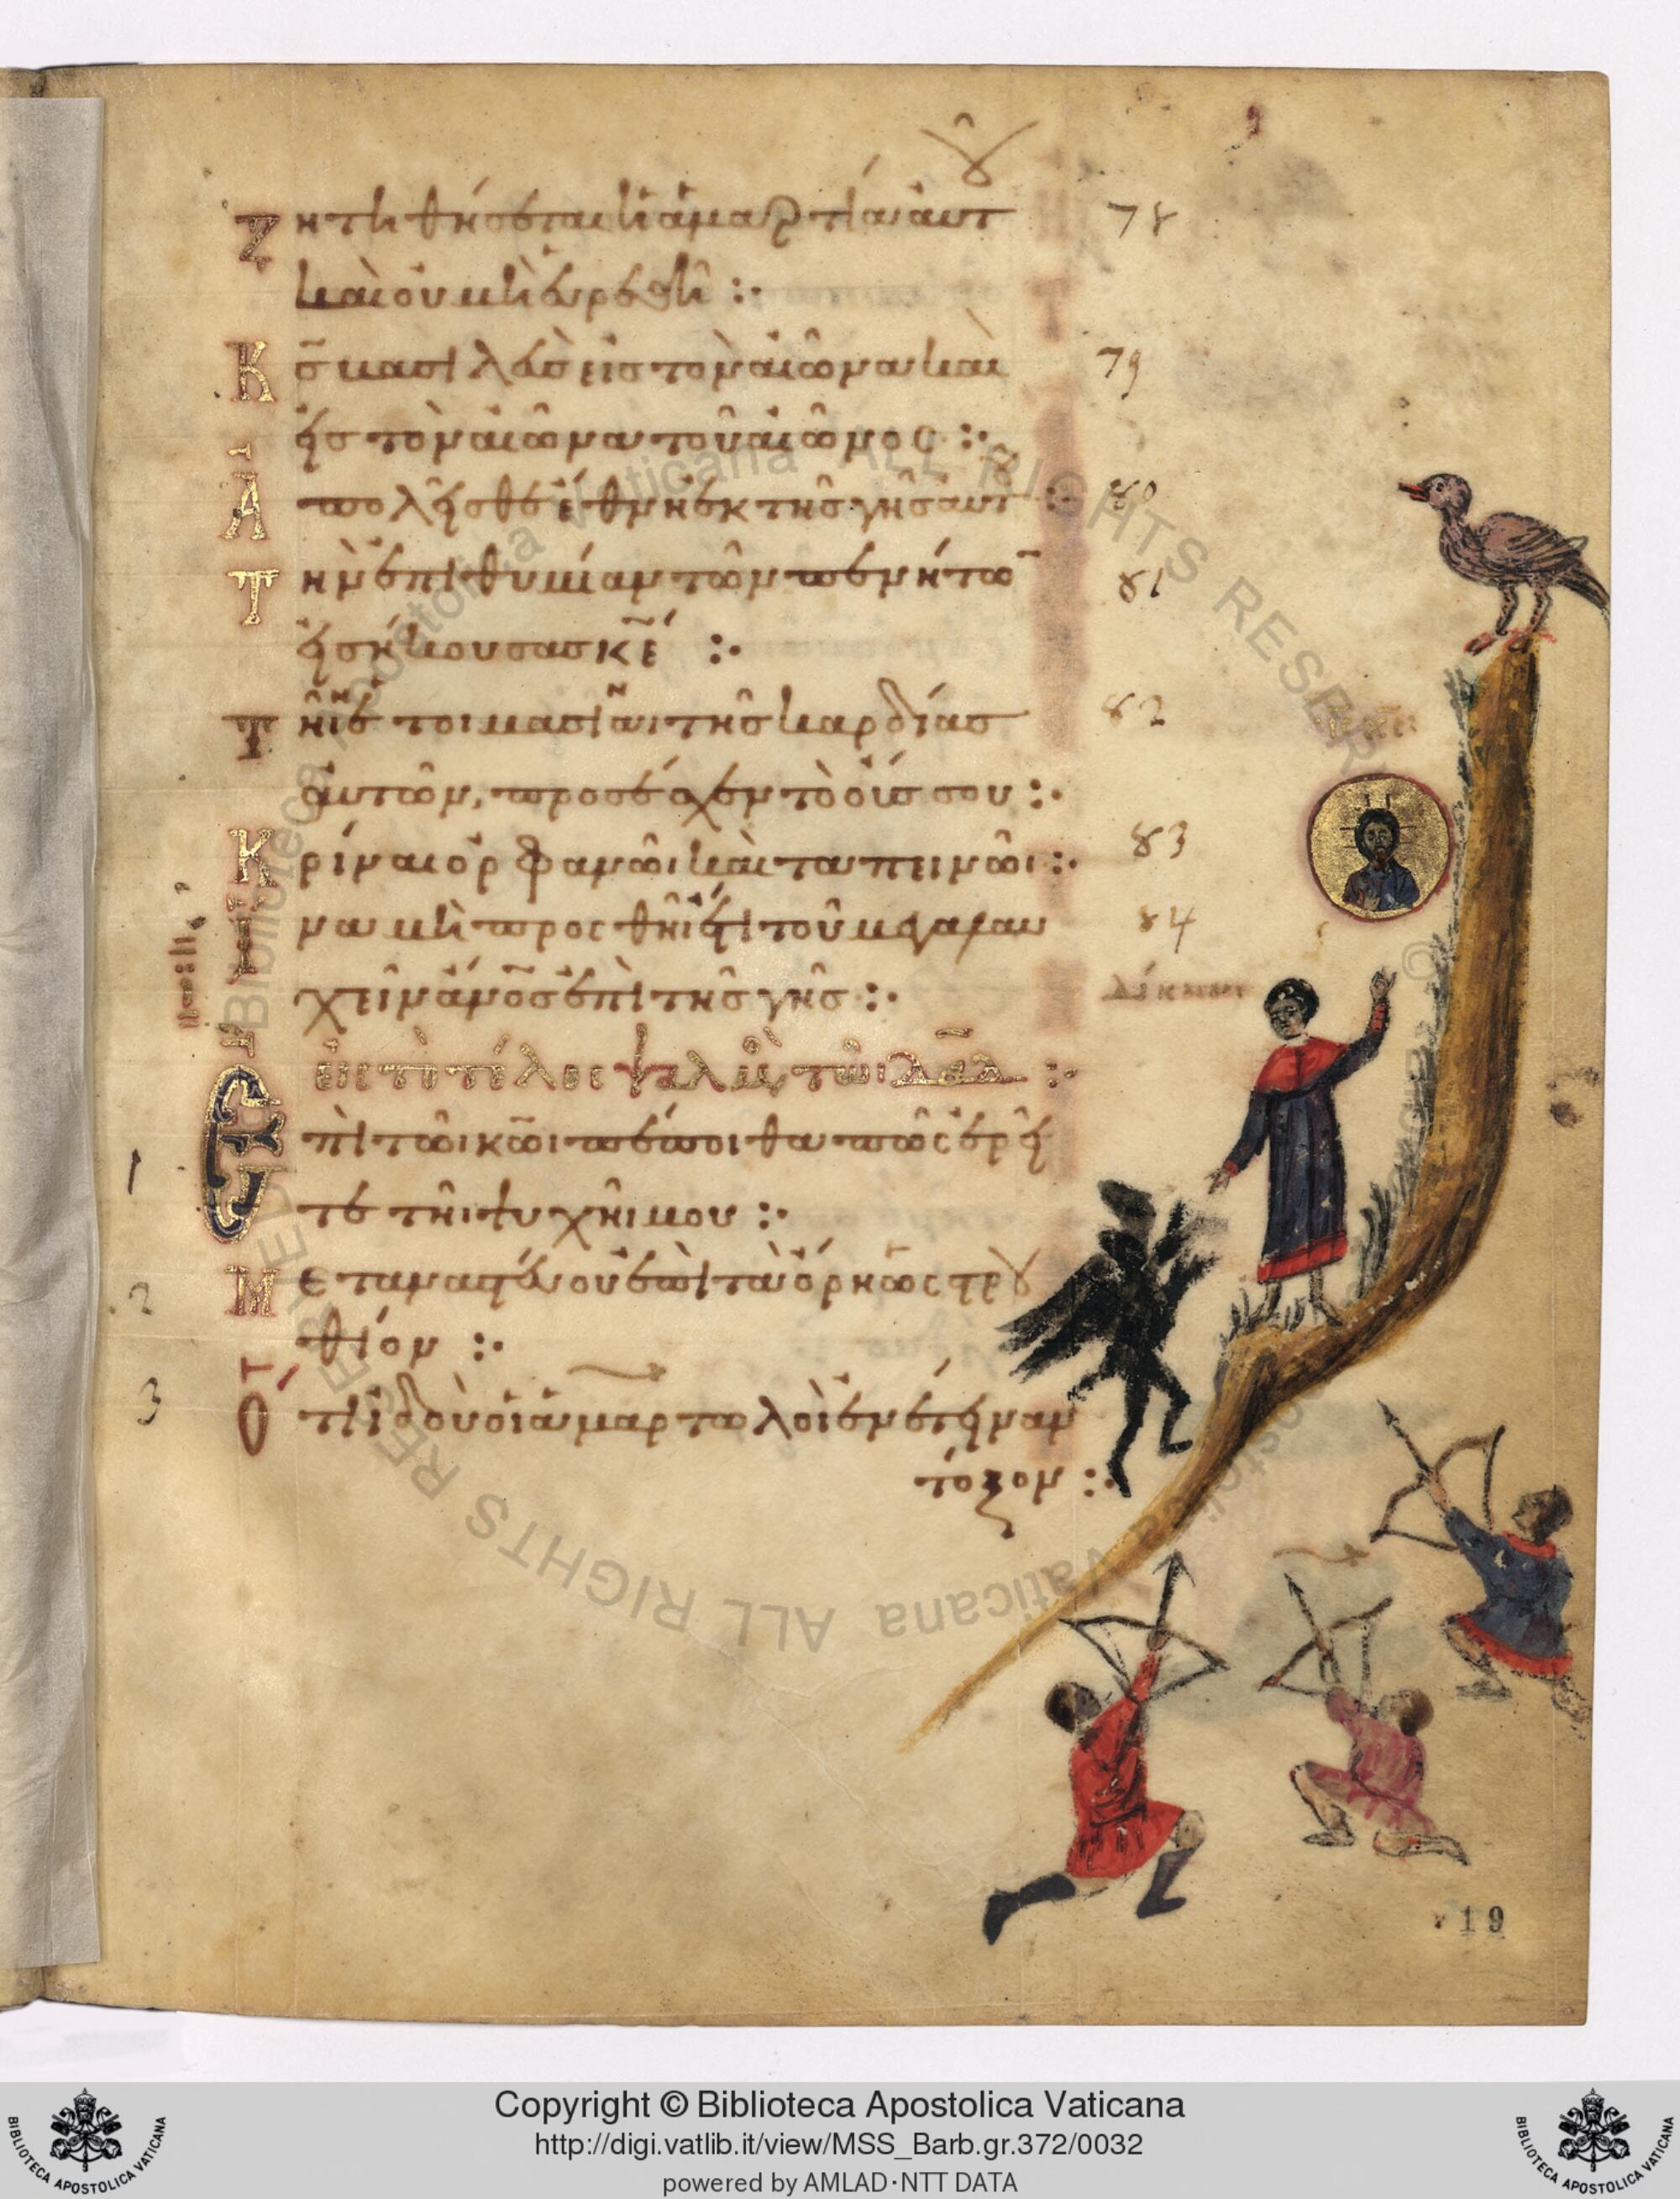 Ζητηθήσεται ἡ ἁμαρτία αὐτ
καὶ οὐ μὴ εὑρεθῆ :·
78
Κς βασιλεὺς εἰς τὸν αἰῶνα καὶ
79
εἰς τὸν αἰῶνα τοῦ αἰῶνος :·
Ἀπολεῖσθε ἔθνη ἐκ τῆς γῆς αὐτ :·
80
Τὴν ἐπιθυμίαν τῶν πενήτω
81
εἰσήκουσας κε :·
Τῆι ἑτοιμασίαι τῆς καρδίας
82
αὐτῶν, προσέσχεν τὸ οὖς σου :·
Κρῖναι ὀρφανῶι καὶ ταπεινῶι :·
83
Ἵνα μὴ προσθῆι ἔτι τοῦ μεγαλαυ
84
χεῖν ἄνος ἐπὶ τῆς γῆς :·
Εἰς τὸ τέλος ψαλμὸ τῶι δαδ :·
1
Ἐπὶ τῶι κῶι πέποιθα πῶς ἐρεῖ
τε τῆι ψυχῆι μου :·
2
Μεταναστεύου ἐπὶ τὰ ὄρη ὡς στρου
θίον :·
3
Ὅτι ἰδοὺ οἱ ἁμαρτωλοὶ ἐνέτειναν
τόξον :·
19
Biblioteca Apostolica Vaticana ALL RIGHTS RESERVED
Copyright © Biblioteca Apostolica Vaticana
http://digi.vatlib.it/view/MSS_Barb.gr.372/0032
powered by AMLAD·NTT DATA
BIBLIOTECA APOSTOLICA VATICANA
BIBLIOTECA APOSTOLICA VATICANA